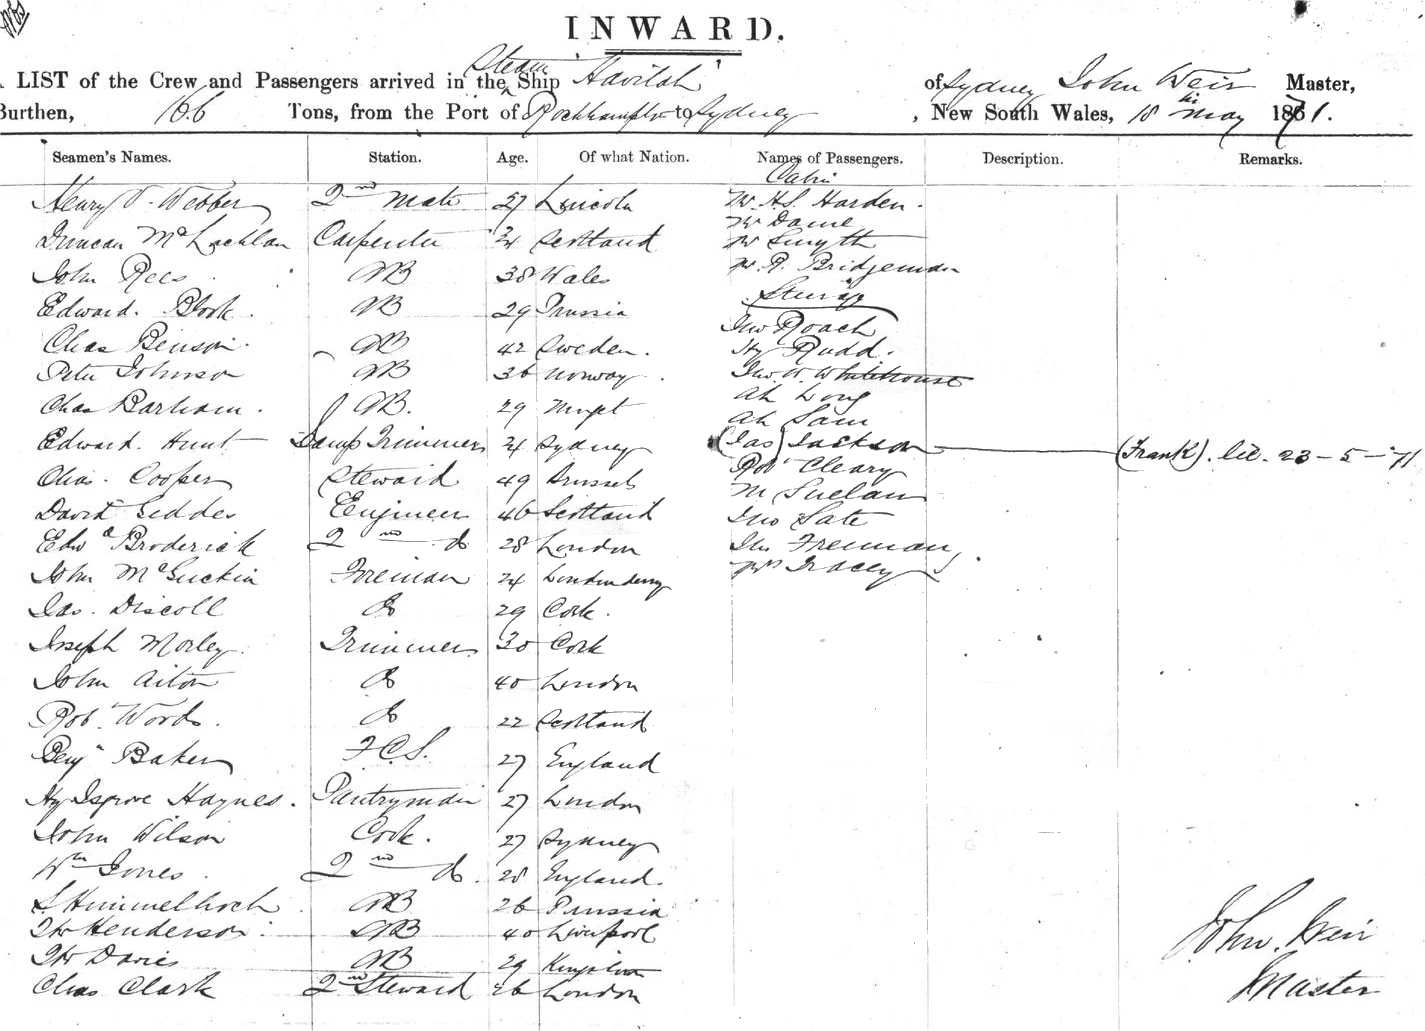 INWARD.
LIST of the Crew and Passengers arrived in the Steam Ship "Havilah" of Sydney John Weir Master,
Burthen, 166 Tons, from the Port of Rockhampton to Sydney, New South Wales, 18 May 1871.
Seamen's Names. Station. Age. Of what Nation. Names of Passengers. Description. Remarks.
Cabin
Henry Webber 2nd Mate 27 Lincoln Mr H.S. Harden.
Mr
Duncan McLachlan Carpenter Scotland Mr Smyth
John Rees AB 38 Wales Mr R. Bridgeman
Edward AB 29 Prussia
Jno Roach
Chas Benson AB 42 Sweden. Hy Rudd.
Peter Johnson AB 36 Norway. Jno W. Whitehouse
Ah Long
Chas Barham. AB. 29
Ah Sam
Edward Hunt Trimmer 24 Sydney (Jas) Jackson (Frank). lic. 23-5-71
Robt Cleary
Chas. Cooper Steward 49 Brussels
M
David Geddes Engineer 46 Scotland Jno
Edwd Broderick 2nd do 28 London Jno Freeman
John McGuckin Foreman 24 Londonderry Tracey
Jas. Discoll do 29 Cork.
Joseph Morley Trimmer 30 Cork
John Aiton do 40 London
Robt Words. do 22 Scotland
Benjn Baker F.C.S. 27 England
Hy Isgrove Haynes. Pantryman 27 London
John Wilson Cook. 27 Sydney
Wm Jones. 2nd do. 28 England.
S Himmelhoch AB 26 Prussia
Henderson. AB 40 Liverpool
Davies AB 29
Chas Clark 2nd Steward 26 London
John Weir
Master